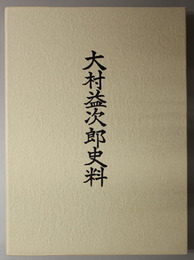 大村益次郎史料